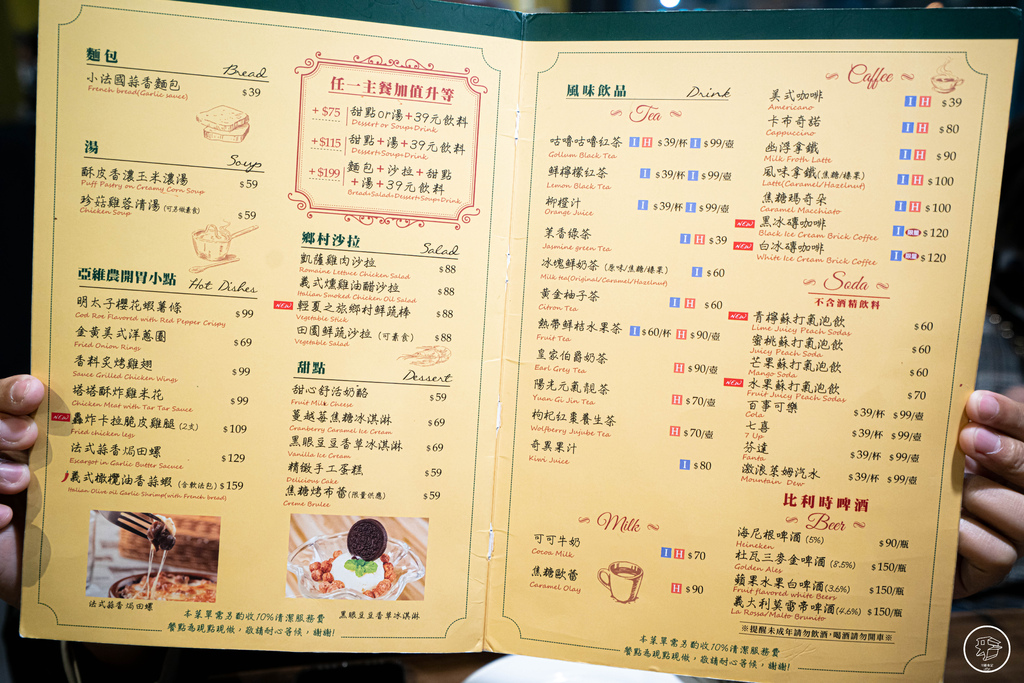 麵包
Bread
小法國蒜香麵包 $39
French bread(Garlic sauce)
湯
Soup
酥皮香濃玉米濃湯 $59
Puff Pastry on Creamy Corn Soup
珍菇雞蓉清湯(可另做素食) $59
Chicken Soup
亞維農開胃小點 Hot Dishes
明太子櫻花蝦薯條 $99
Cod Roe Flavored with Red Pepper Crispy
金黃美式洋蔥圈 $69
Fried Onion Rings
香料炙烤雞翅 $99
Sauce Grilled Chicken Wings
塔塔酥炸雞米花 $99
Chicken Meat with Tar Tar Sauce
NEW 轟炸卡拉脆皮雞腿(2支) $109
Fried chicken legs
法式蒜香焗田螺 $129
Escargot in Garlic Butter Sacuce
義式橄欖油香蒜蝦(含軟法包) $159
Italian Olive oil Garlic Shrimp(with French bread)
法式蒜香焗田螺
任一主餐加值升等
+$75 甜點or湯+39元飲料
Dessert or Soup+Drink
+$115 甜點+湯+39元飲料
Dessert+Soup+Drink
+$199 麵包+沙拉+甜點
+湯+39元飲料
Bread+Salad+Dessert+Soup+Drink
鄉村沙拉
Salad
凱薩雞肉沙拉 $88
Romaine Lettuce Chicken Salad
義式燻雞油醋沙拉 $88
Italian Smoked Chicken Oil Salad
NEW 輕夏之旅鄉村鮮蔬棒 $88
Vegetable Stick
田園鮮蔬沙拉(可素食) $88
Vegetable Salad
甜點
Dessert
甜心舒活奶酪 $59
Fruit Milk Cheese
蔓越莓焦糖冰淇淋 $69
Cranberry Caramel Ice Cream
黑眼豆豆香草冰淇淋 $69
Vanilla Ice Cream
精緻手工蛋糕 $59
Delicious Cake
焦糖烤布蕾(限量供應) $59
Creme Brulee
黑眼豆豆香草冰淇淋
本菜單需另酌收10%清潔服務費
餐點為現點現做，敬請耐心等候，謝謝!
風味飲品 Drink
Tea
咕嚕咕嚕紅茶 I H $39/杯 I $99/壺
Gollum Black Tea
鮮檸檬紅茶 I $39/杯 I $99/壺
Lemon Black Tea
柳橙汁 I $39/杯 I $99/壺
Orange Juice
茉香綠茶 I H $39
Jasmine green Tea
冰塊鮮奶茶(原味/焦糖/榛果) I $60
Milk tea(Original/Caramel/Hazelnut)
黃金柚子茶 I H $60
Citron Tea
熱帶鮮桔水果茶 I $60/杯 H $90/壺
Fruit Tea
皇家伯爵奶茶 H $90/壺
Earl Grey Tea
陽光元氣靚茶 H $70/壺
Yuan Gi Jin Tea
枸杞紅棗養生茶 H $70/壺
Wolfberry Jujube Tea
奇異果汁 I $80
Kiwi Juice
Milk
可可牛奶 I H $70
Cocoa Milk
焦糖歐蕾 H $90
Caramel Olay
Coffee
美式咖啡 I H $39
Americano
卡布奇諾 I H $80
Cappuccino
幽浮拿鐵 I H $90
Milk Froth Latte
風味拿鐵(焦糖/榛果) I H $100
Latte(Caramel/Hazelnut)
焦糖瑪奇朵 I H $100
Caramel Macchiato
NEW 黑冰磚咖啡 I $120
Black Ice Cream Brick Coffee
NEW 白冰磚咖啡 I $120
White Ice Cream Brick Coffee
Soda
不含酒精飲料
NEW 青檸蘇打氣泡飲 $60
Lime Juicy Peach Sodas
蜜桃蘇打氣泡飲 $60
Juicy Peach Soda
芒果蘇打氣泡飲 $60
Mango Soda
NEW 水果蘇打氣泡飲 $70
Fruit Juicy Peach Sodas
百事可樂 $39/杯 $99/壺
Cola
七喜 $39/杯 $99/壺
7 Up
芬達 $39/杯 $99/壺
Fanta
激浪萊姆汽水 $39/杯 $99/壺
Mountain Dew
比利時啤酒
Beer
海尼根啤酒(5%) $90/瓶
Heineken
杜瓦三麥金啤酒(8.5%) $150/瓶
Golden Ales
蘋果水果白啤酒(3.6%) $150/瓶
Fruit flavored white Beers
義大利莫雷帝啤酒(4.6%) $150/瓶
La Rossa/Malto Brunito
※提醒未成年請勿飲酒，喝酒請勿開車※
本菜單需另酌收10%清潔服務費
餐點為現點現做，敬請耐心等候，謝謝!